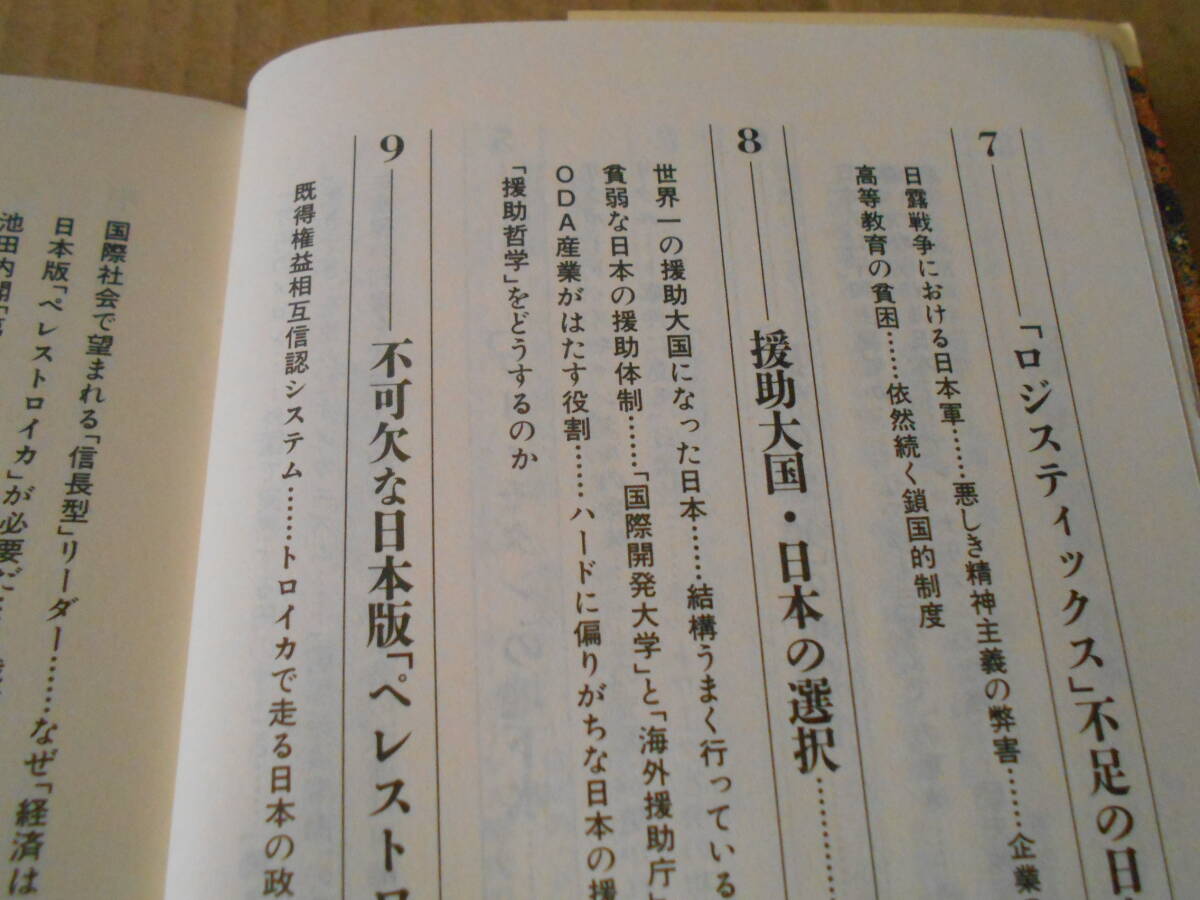 7
「ロジスティックス」不足の日
日露戦争における日本軍……悪しき精神主義の弊害……企業
高等教育の貧困……依然続く鎖国的制度
8
援助大国・日本の選択……
世界一の援助大国になった日本……結構うまく行っている
貧弱な日本の援助体制……「国際開発大学」と「海外援助庁」
ODA産業がはたす役割……ハードに偏りがちな日本の援
「援助哲学」をどうするのか
9
不可欠な日本版「ペレストロ
既得権益相互信認システム……トロイカで走る日本の政
国際社会で望まれる「信長型」リーダー……なぜ「経済は
日本版「ペレストロイカ」が必要だ
池田内閣「